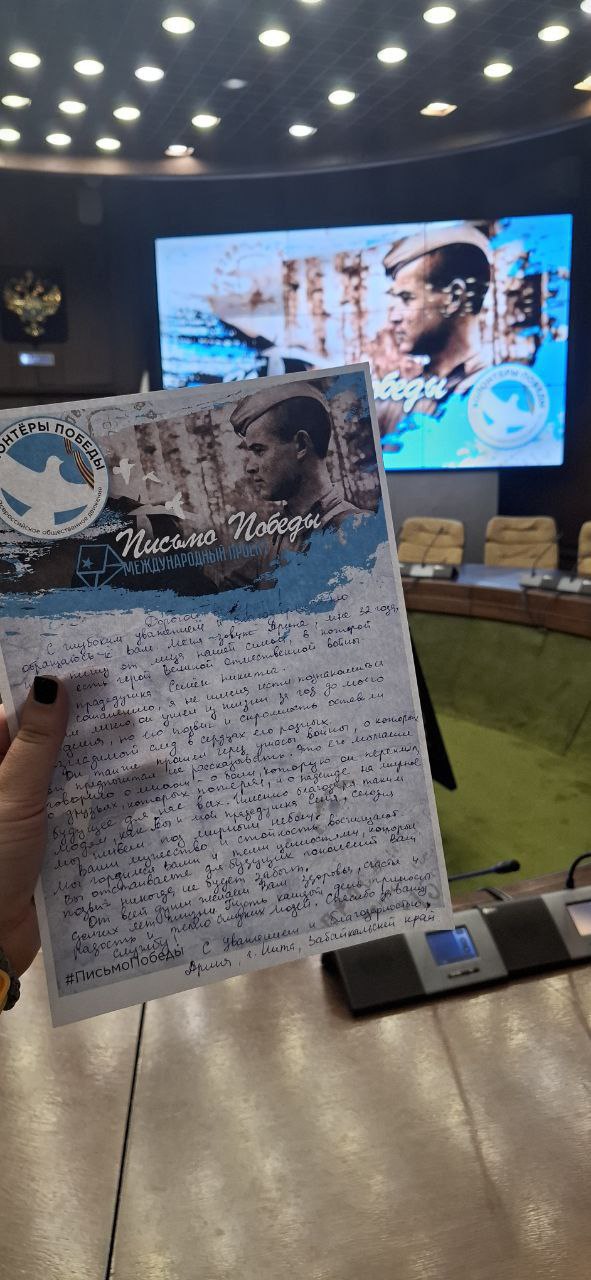 обеды
ВОЛОНТЁРЫ ПОБЕДЫ
ОНТЁРЫ ПОБЕДЫ
Всероссийское общественное движение
Письмо Победы
МЕЖДУНАРОДНЫЙ ПРОЕКТ
Дорогой
С глубоким уважением и
обращаюсь к Вам. Меня зовут Арина, мне 32 года,
пишу от лица нашей семьи, в которой
есть герой великой отечественной войны
прадедушка Семён Никита.
сожалению, я не имела чести познакомиться
с ним лично, он ушёл из жизни за год до моего
но его подвиг и скромность оставили
след в сердцах его родных.
Он также прошел через ужасы войны, о которых
он предпочитал не рассказывать. Это его молчание
говорило о многом - о боли, которую он пережил,
о друзьях, которых потерял, и о надежде на мирное
будущее для нас всех. Именно благодаря таким
людям, как Вы и мой прадедушка Сеня, сегодня
мы живём под мирным небом.
Ваши мужество и стойкость восхищают
Мы гордимся вами и теми ценностями, которые
Вы отстаиваете для будущих поколений Ваш
подвиг никогда не будет забыт.
От всей души желаем Вам здоровья, счастья и
долгих лет жизни. Пусть каждый день приносит
радость и тепло близких людей. Спасибо за вашу
службу!
С уважением и благодарностью,
Арина, г. Чита, Забайкальский край
#ПисьмоПобеды